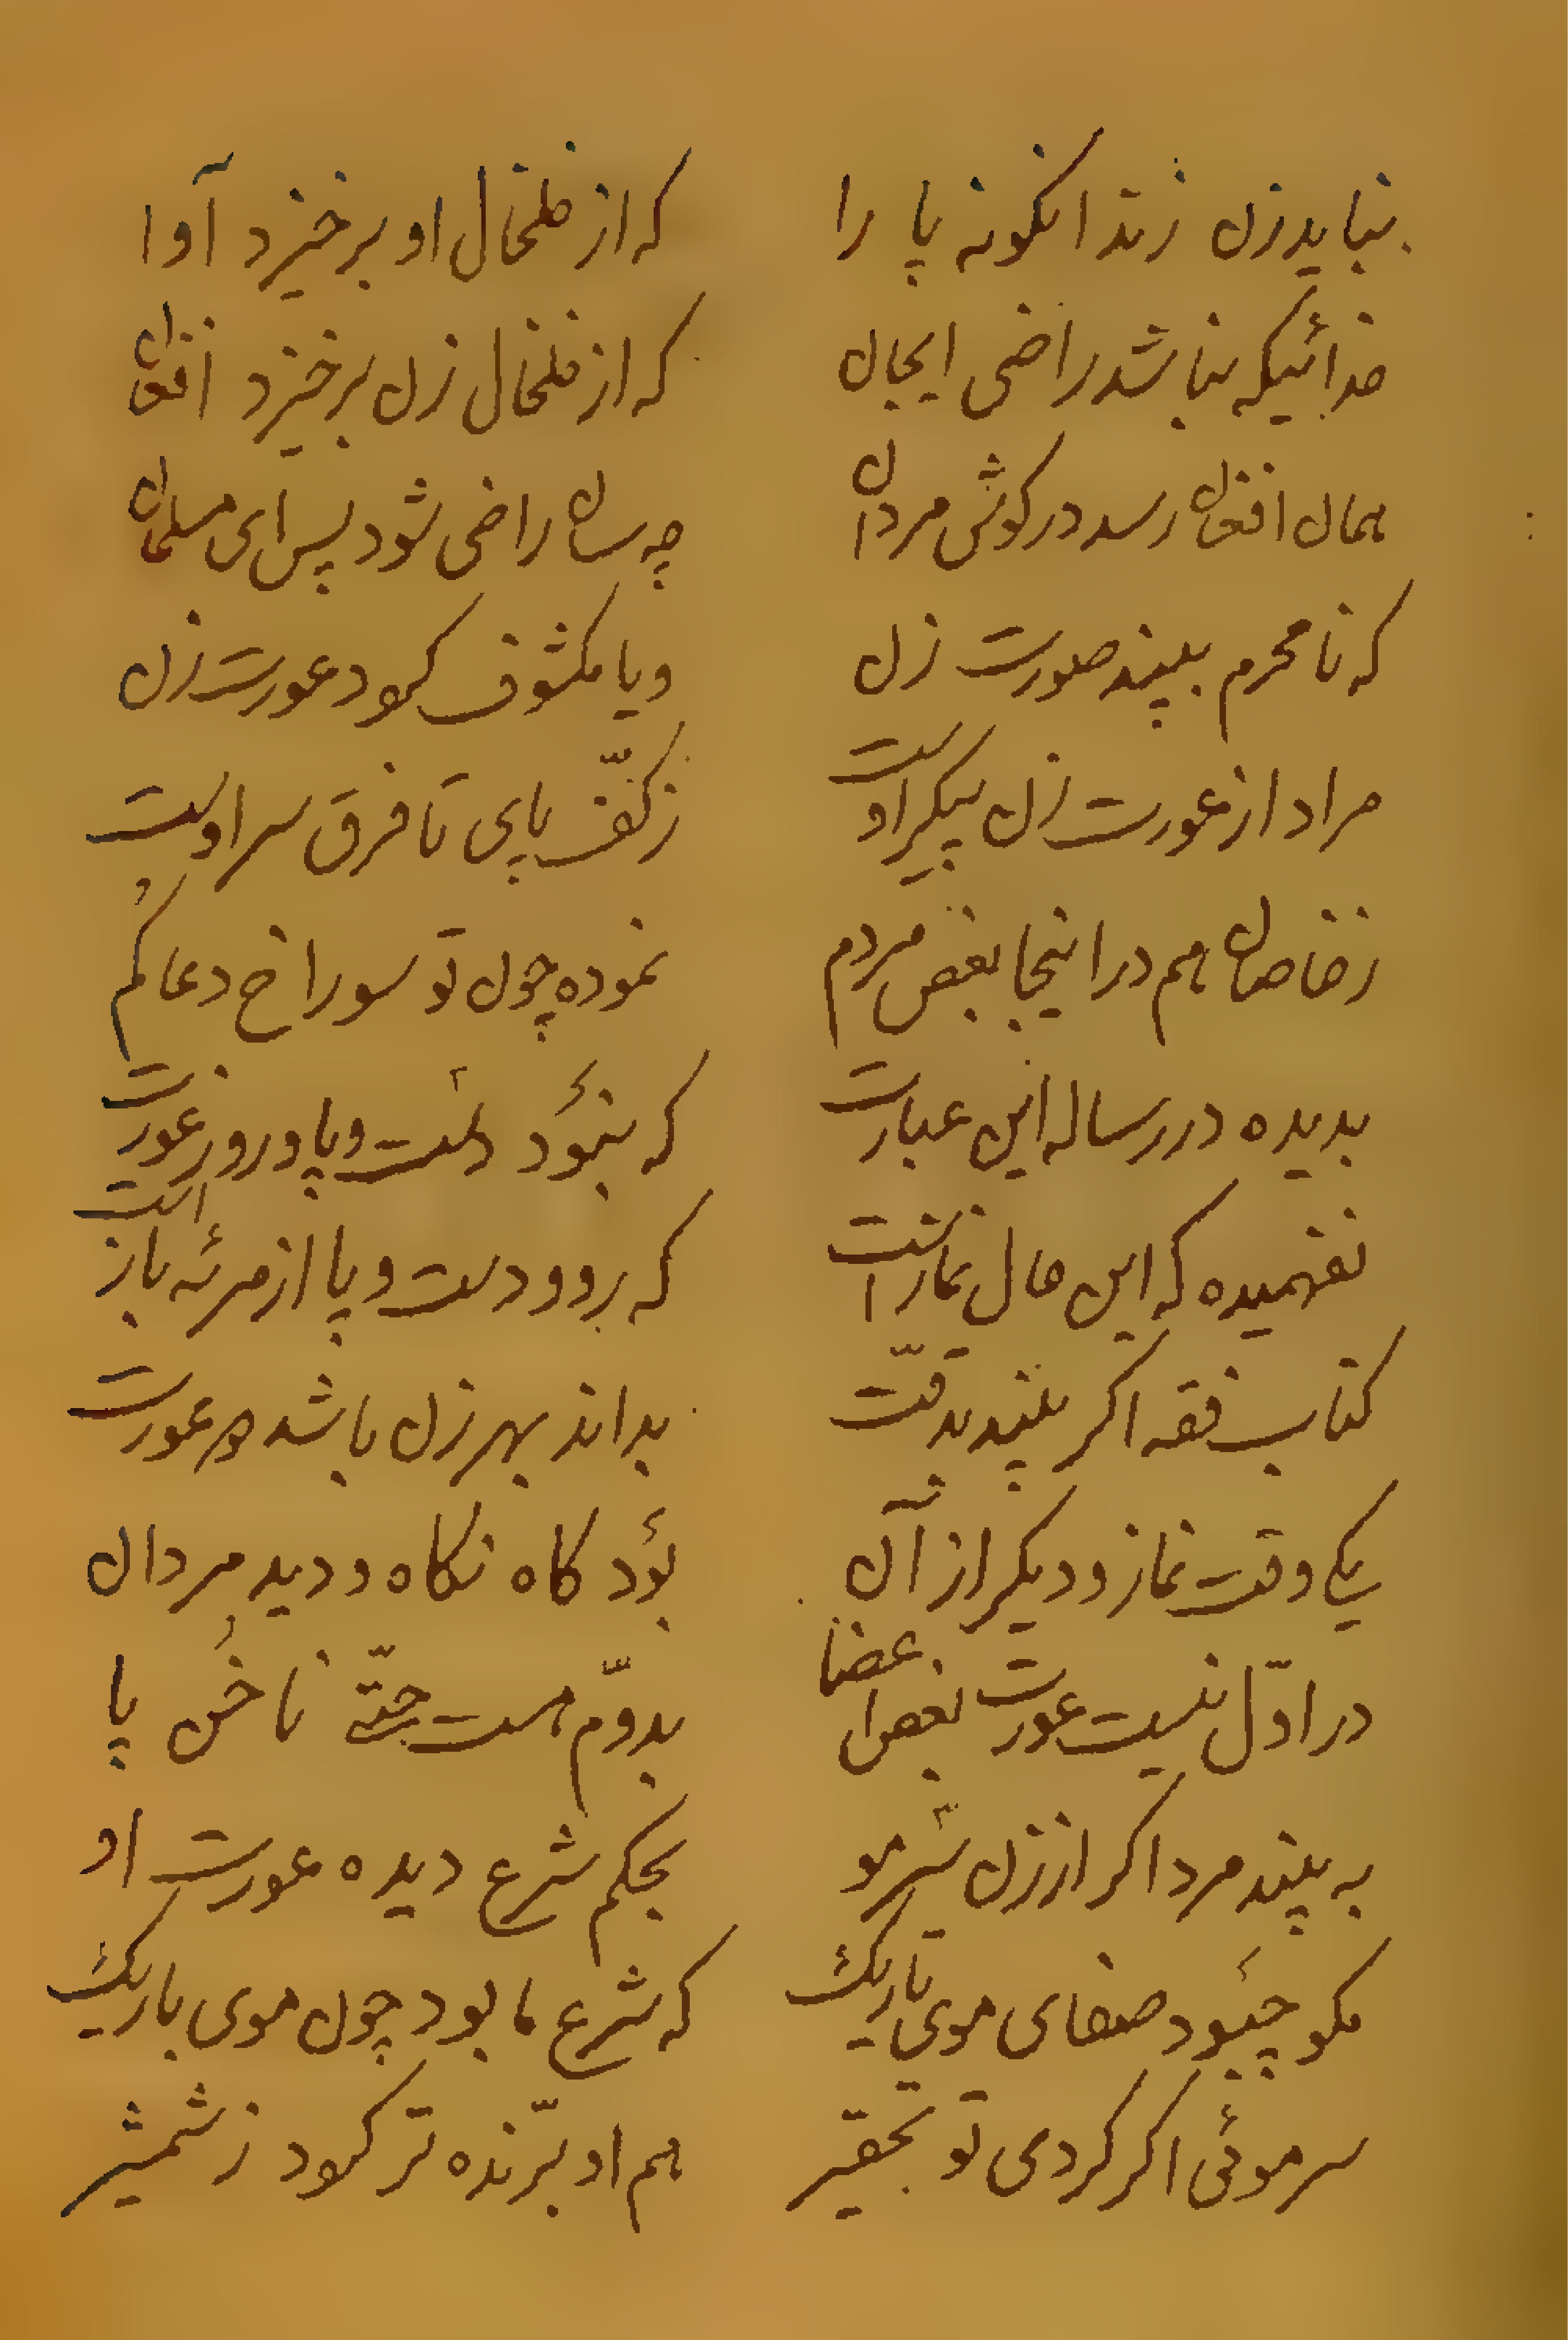 نباید زن زند انگونه پا را
که از خلخال او برخیزد آوا
خدائیکه نباشد راضی ایجان
که از خلخال زن برخیزد افغان
همان افغان رسد در گوش مردان
چه سان راضی شود پس ای مسلمان
که نامحرم ببیند صورت زن
و یا مکشوف گردد عورت زن
مراد از عورت زن پیکر اوست
ز کفّ پای تا فرق سر اوست
ز خاصان هم در اینجا بعض مردم
نموده چون تو سوراخ دعا گُم
بدیده در رساله این عبارت
که نبوَد دست و پا و روز عورت
نفهمیده که این حال نماز است
که رو و دست و پا از مرئه باز است
کتاب فقه اگر بیند بدقّت
بداند بهر زن باشد دو عورت
یکی وقت نماز و دیگر از آن
بوَد گاه نگاه و دید مردان
در اوّل نیست عورت بعض اعضا
بدوّم هست حتّی ناخُن پا
به بیند مرد اگر از زن سَرِ مو
بحکم شرع دیده عورت او
مگو چِبوَد صفای موی تاریک
که شرع ما بود چون موی باریک
سر موئی اگر کردی تو تحقیر
هم او برّنده تر گردد ز شمشیر